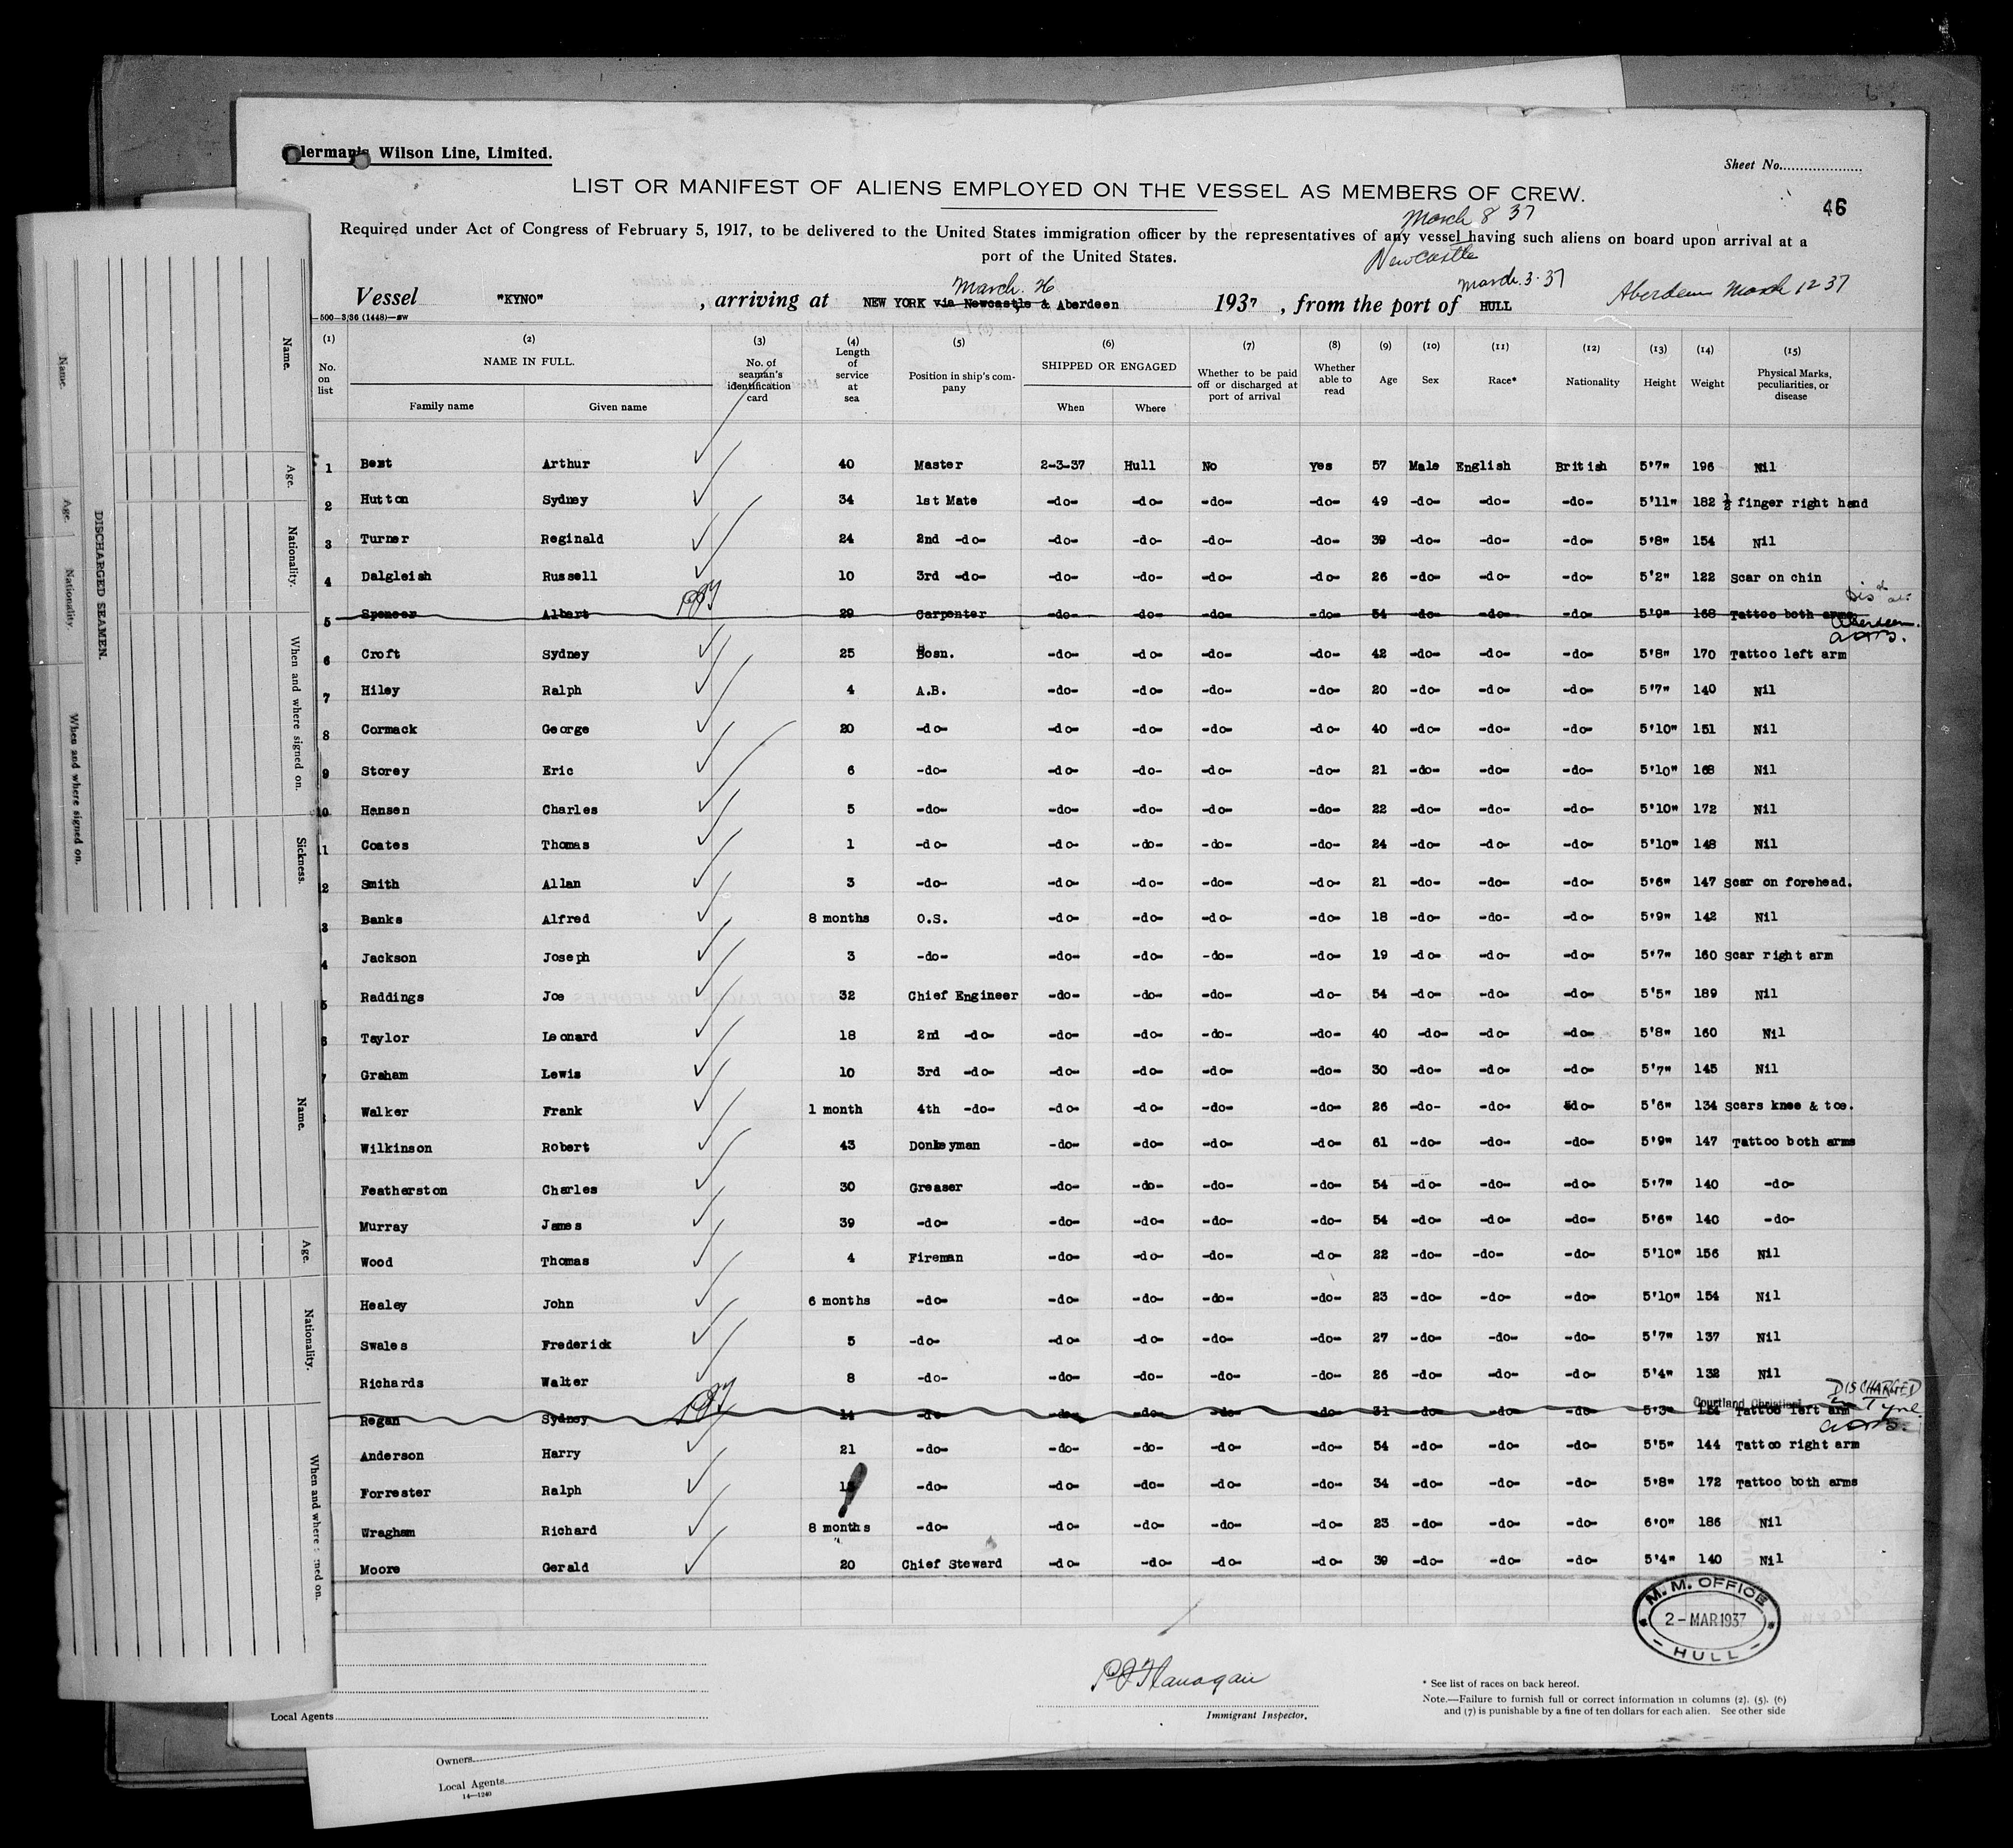 Ellerman's Wilson Line, Limited.
Sheet No.
LIST OR MANIFEST OF ALIENS EMPLOYED ON THE VESSEL AS MEMBERS OF CREW.
46
March 8 37
Required under Act of Congress of February 5, 1917, to be delivered to the United States immigration officer by the representatives of any vessel having such aliens on board upon arrival at a
port of the United States.
Newcastle
March 26
March 3. 37
Aberdeen March 12 37
Vessel "KYNO" , arriving at NEW YORK via Newcastle & Aberdeen 1937 , from the port of HULL
-500-3/36 (1448)-SW
(1) No. on list
(2) NAME IN FULL. Family name Given name
(3) No. of seaman's identification card
(4) Length of service at sea
(5) Position in ship's company
(6) SHIPPED OR ENGAGED When Where
(7) Whether to be paid off or discharged at port of arrival
(8) Whether able to read
(9) Age
(10) Sex
(11) Race*
(12) Nationality
(13) Height
(14) Weight
(15) Physical Marks, peculiarities, or disease
1 Bent Arthur 40 Master 2-3-37 Hull No Yes 57 Male English British 5'7" 196 Nil
2 Hutton Sydney 34 1st Mate -do- -do- -do- -do- 49 -do- -do- -do- 5'11" 182 ½ finger right hand
3 Turner Reginald 24 2nd -do- -do- -do- -do- -do- 39 -do- -do- -do- 5'8" 154 Nil
4 Dalgleish Russell 10 3rd -do- -do- -do- -do- -do- 26 -do- -do- -do- 5'2" 122 Scar on chin
5 Spencer Albert 29 Carpenter -do- -do- -do- -do- 54 -do- -do- -do- 5'9" 168 Tattoo both arms
Disd at
Aberdeen.
6 Croft Sydney 25 Bosn. -do- -do- -do- -do- 42 -do- -do- -do- 5'8" 170 Tattoo left arm
7 Hiley Ralph 4 A.B. -do- -do- -do- -do- 20 -do- -do- -do- 5'7" 140 Nil
8 Cormack George 20 -do- -do- -do- -do- -do- 40 -do- -do- -do- 5'10" 151 Nil
9 Storey Eric 6 -do- -do- -do- -do- -do- 21 -do- -do- -do- 5'10" 168 Nil
10 Hansen Charles 5 -do- -do- -do- -do- -do- 22 -do- -do- -do- 5'10" 172 Nil
1 Coates Thomas 1 -do- -do- -do- -do- -do- 24 -do- -do- -do- 5'10" 148 Nil
2 Smith Allan 3 -do- -do- -do- -do- -do- 21 -do- -do- -do- 5'6" 147 Scar on forehead.
3 Banks Alfred 8 months O.S. -do- -do- -do- -do- 18 -do- -do- -do- 5'9" 142 Nil
4 Jackson Joseph 3 -do- -do- -do- -do- -do- 19 -do- -do- -do- 5'7" 160 Scar right arm
5 Raddings Joe 32 Chief Engineer -do- -do- -do- -do- 54 -do- -do- -do- 5'5" 189 Nil
6 Taylor Leonard 18 2nd -do- -do- -do- -do- -do- 40 -do- -do- -do- 5'8" 160 Nil
7 Graham Lewis 10 3rd -do- -do- -do- -do- -do- 30 -do- -do- -do- 5'7" 145 Nil
Walker Frank 1 month 4th -do- -do- -do- -do- -do- 26 -do- -do- -do- 5'6" 134 Scars knee & toe.
Wilkinson Robert 43 Donkeyman -do- -do- -do- -do- 61 -do- -do- -do- 5'9" 147 Tattoo both arms
Featherston Charles 30 Greaser -do- -do- -do- -do- 54 -do- -do- -do- 5'7" 140 -do-
Murray James 39 -do- -do- -do- -do- -do- 54 -do- -do- -do- 5'6" 140 -do-
Wood Thomas 4 Fireman -do- -do- -do- -do- 22 -do- -do- -do- 5'10" 156 Nil
Healey John 6 months -do- -do- -do- -do- -do- 23 -do- -do- -do- 5'10" 154 Nil
Swales Frederick 5 -do- -do- -do- -do- -do- 27 -do- -do- -do- 5'7" 137 Nil
Richards Walter 8 -do- -do- -do- -do- -do- 26 -do- -do- -do- 5'4" 132 Nil
DISCHARGED
Tyne
Regan Sydney 14 -do- -do- -do- -do- -do- 31 -do- -do- -do- 5'3" Tattoo left arm
Anderson Harry 21 -do- -do- -do- -do- -do- 54 -do- -do- -do- 5'5" 144 Tattoo right arm
Forrester Ralph -do- -do- -do- -do- -do- 34 -do- -do- -do- 5'8" 172 Tattoo both arms
Wragham Richard 8 months -do- -do- -do- -do- -do- 23 -do- -do- -do- 6'0" 186 Nil
Moore Gerald 20 Chief Steward -do- -do- -do- -do- 39 -do- -do- -do- 5'4" 140 Nil
M. M. OFFICE
2 - MAR 1937
HULL
P J Flanagan
Immigrant Inspector.
* See list of races on back hereof.
Note.—Failure to furnish full or correct information in columns (2). (5). (6)
and (7) is punishable by a fine of ten dollars for each alien. See other side
Local Agents
Owners
Local Agents
14—1240
DISCHARGED SEAMEN.
Name.
Age.
Nationality.
When and where signed on.
Sickness.
Name.
Age.
Nationality.
When and where signed on.
Name.
Age.
Nationality.
When and where signed on.